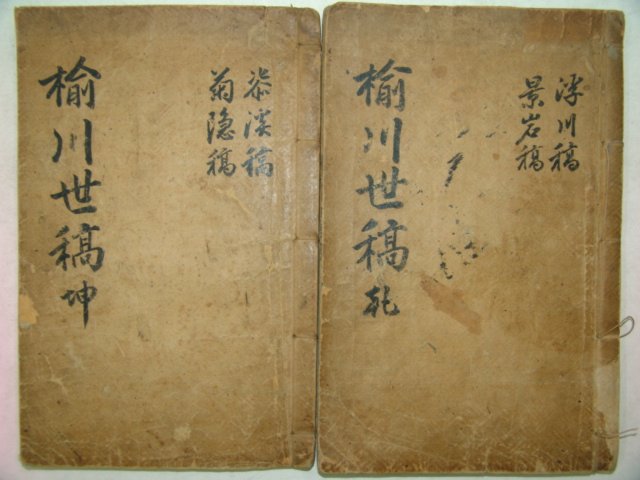 浮川稿
景岩稿
榆川世稿 乾
菊隐稿
榆川世稿 坤